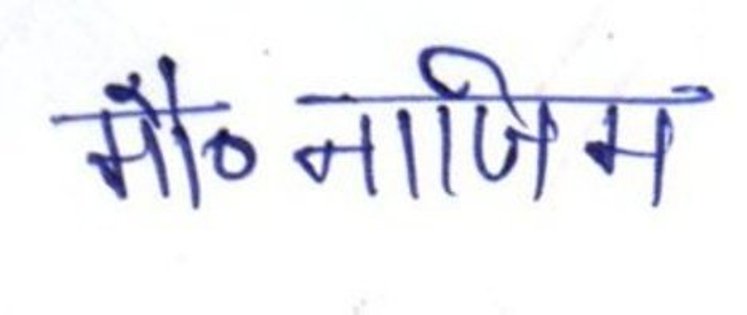 मौ० नाजिम